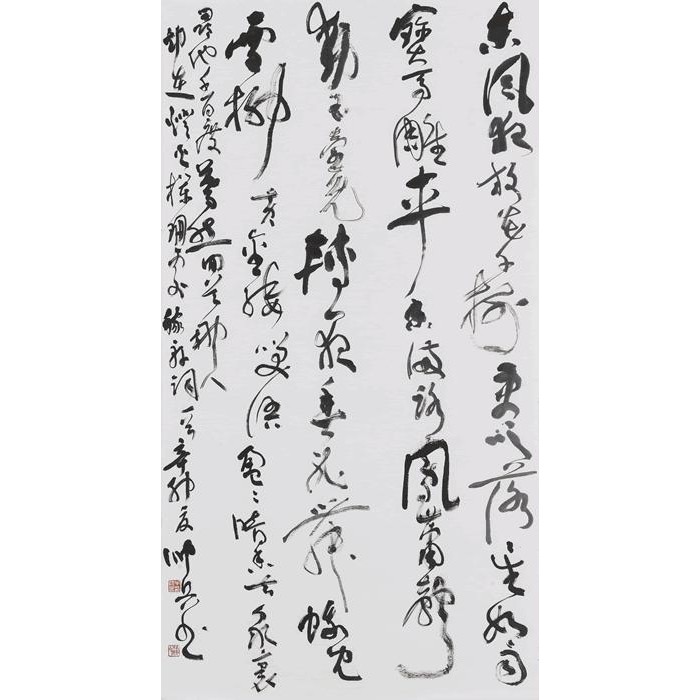 东风夜放花千樹更吹落星如雨
寶馬雕車香滿路鳳簫聲
動玉壺光轉一夜魚龍舞蛾兒
雪柳黄金縷笑語盈盈暗香去衆裏
尋他千百度驀然回首那人
却在燈火欄珊處稼軒詞一首辛卯夏書